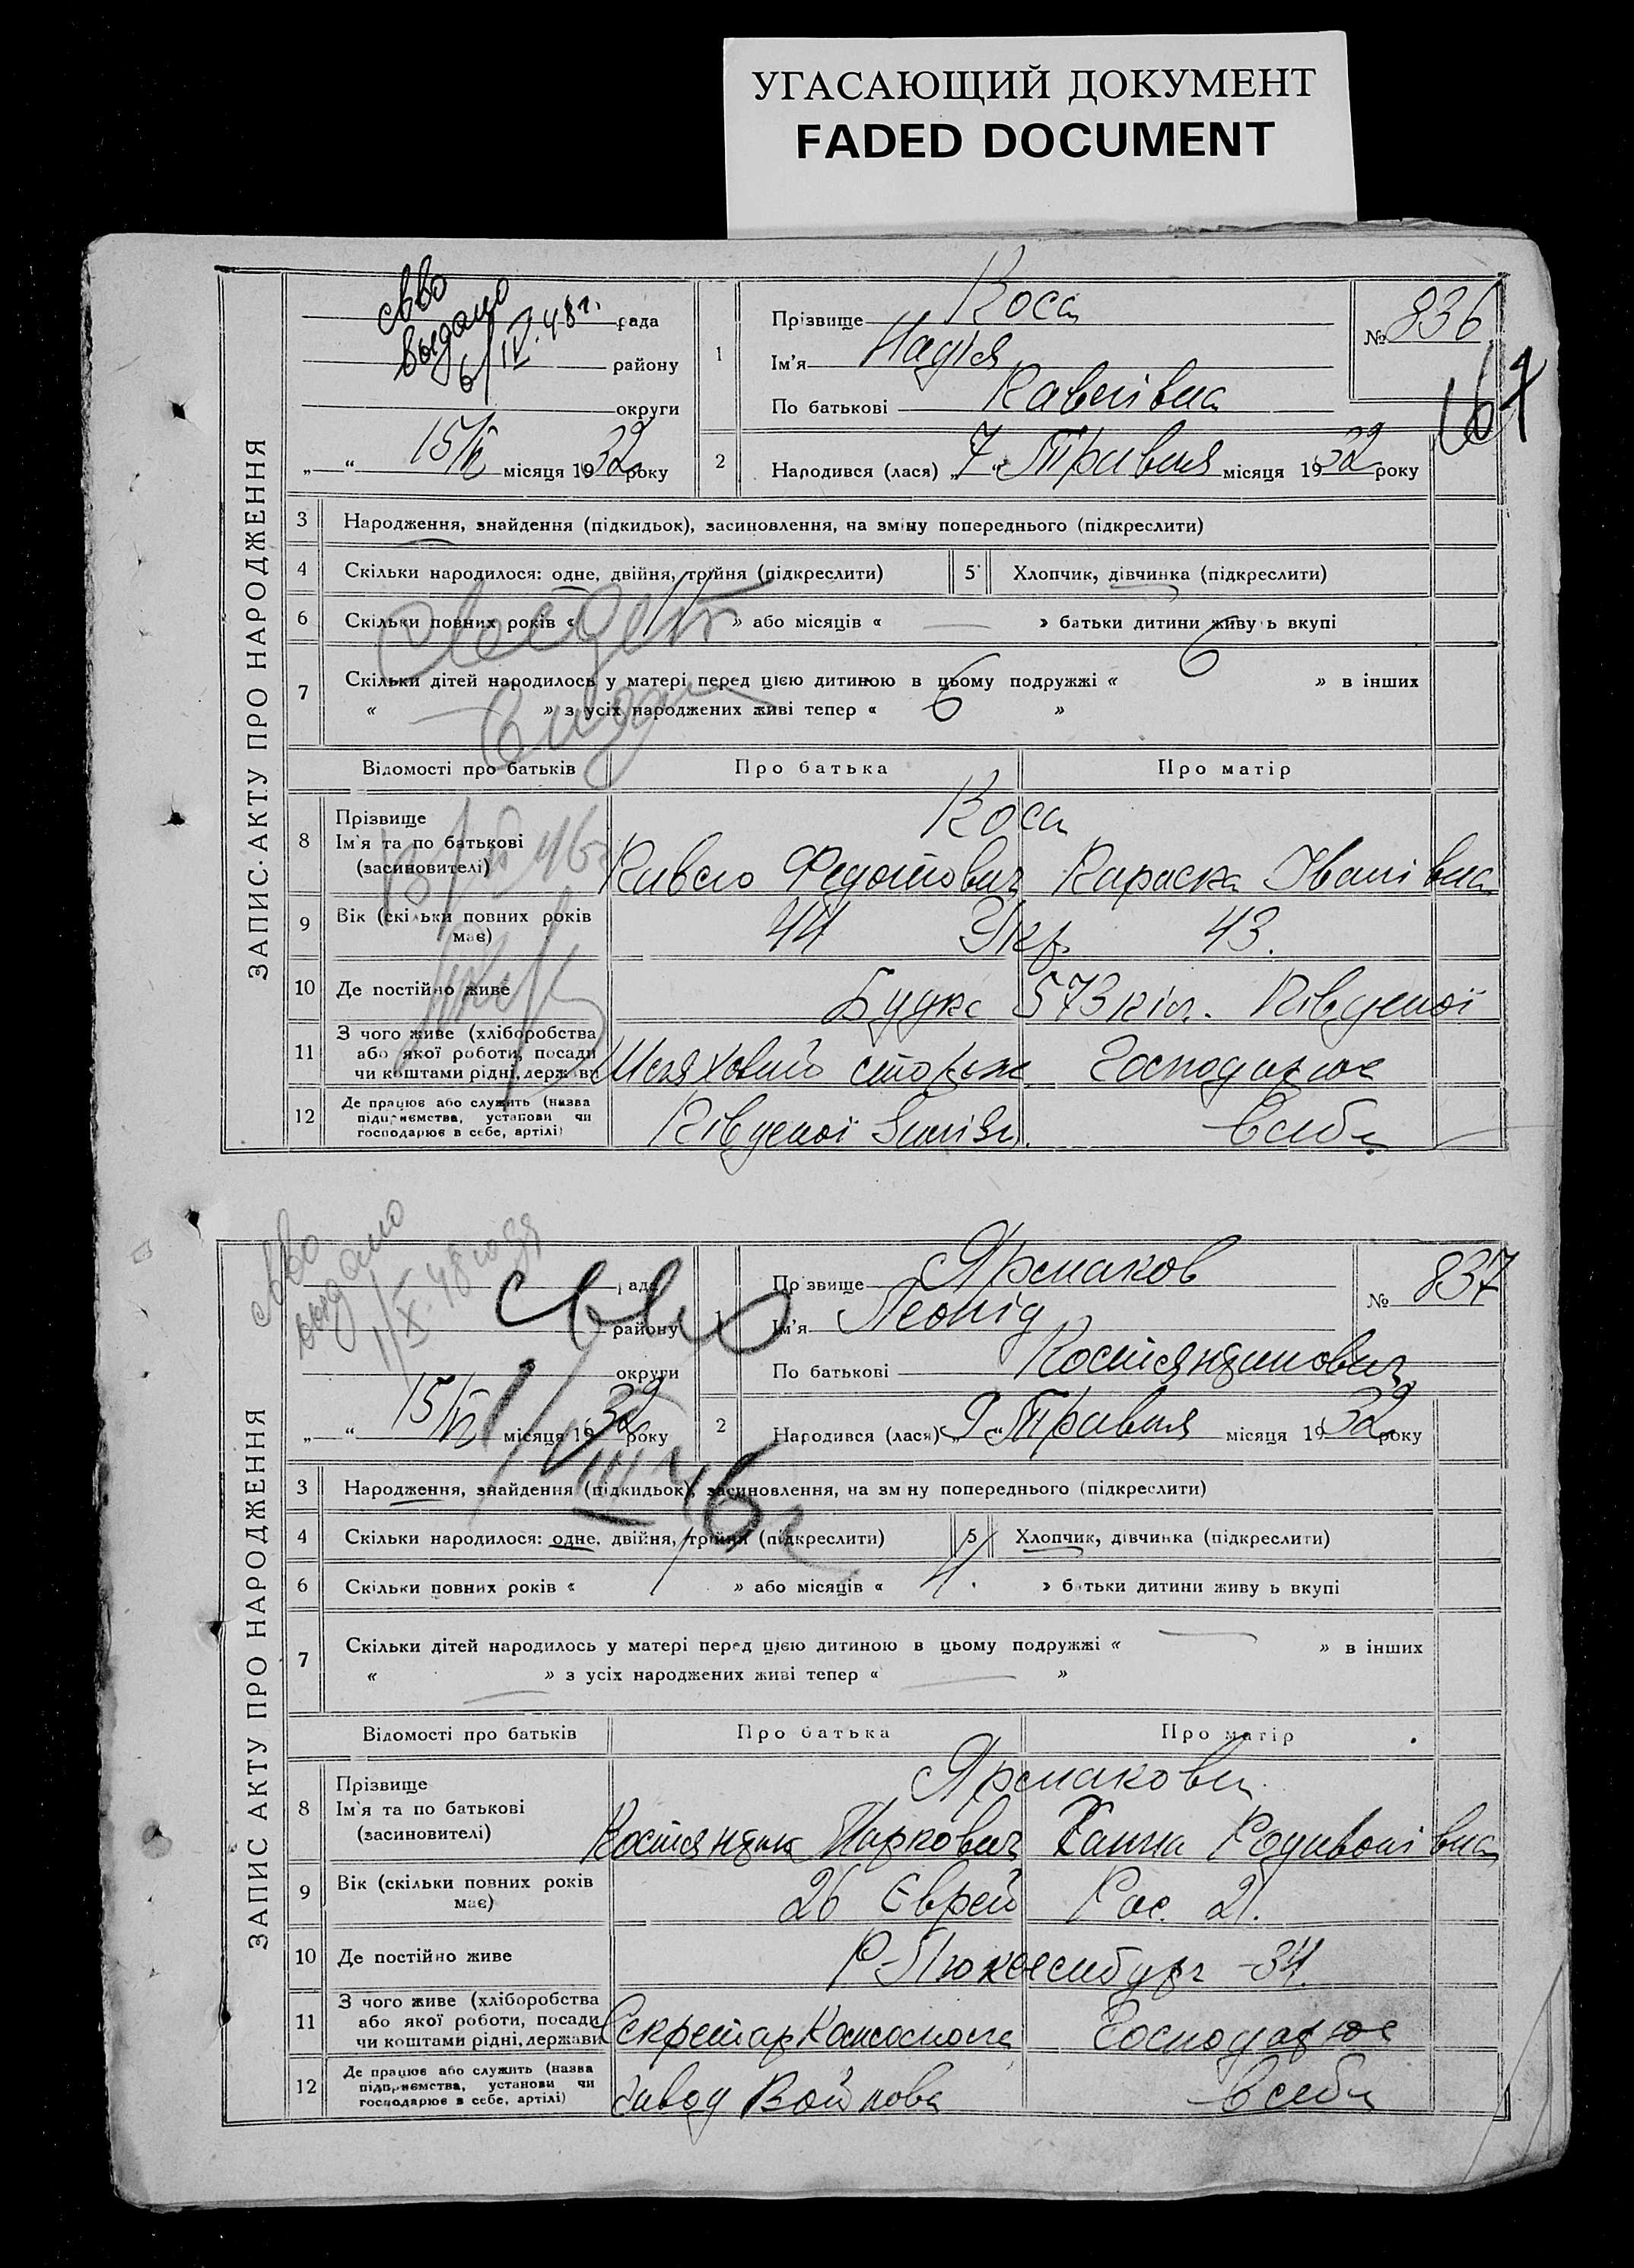 УГАСАЮЩИЙ ДОКУМЕНТ
FADED DOCUMENT
ЗАПИС АКТУ ПРО НАРОДЖЕННЯ
с-во
выдано
6/IV-48 г.
рада
району
округи
„ “ 15/VI місяця 1932 року
1
Прізвище Коса
Ім'я Надія
По батькові
№ 836
167
2
Народився (лася) „7“ Травня місяця 1932 року
3 Народження, знайдення (підкидьок), засиновлення, на зміну попереднього (підкреслити)
4 Скільки народилося: одне, двійня, трійня (підкреслити)
5 Хлопчик, дівчинка (підкреслити)
6 Скільки повних років « » або місяців « — » батьки дитини живуь вкупі
7 Скільки дітей народилось у матері перед цією дитиною в цьому подружжі « 6 » в інших
« — » з усіх народжених живі тепер « 6 »
Відомості про батьків Про батька Про матір
8 Прізвище
Ім'я та по батькові
(засиновителі)
Коса
Федотович Параска Іванівна
9 Вік (скільки повних років
має)
44 Укр. 43.
10 Де постійно живе
Будка 573 кіл. Південої
11 З чого живе (хліборобства
або якої роботи, посади
чи коштами рідні, держави
Шляховий сторож Господарює
12 Де працює або служить (назва
підприємства, установи чи
господарює в себе, артілі)
Південої в себе
ЗАПИС АКТУ ПРО НАРОДЖЕННЯ
с-во
выдано
1/X-48 года
с-во
1/III 46 г
рада
району
округи
„ “ 15/VI місяця 1932 року
1
Пр звище Ярмаков
Ім'я Леонід
По батькові Костянтинович
№ 837
2
Народився (лася) „9“ Травня місяця 1932 року
3 Народження, знайдення (підкидьок), засиновлення, на зм ну попереднього (підкреслити)
4 Скільки народилося: одне, двійня, трійня (підкреслити)
5 Хлопчик, дівчинка (підкреслити)
6 Скільки повних років « 1 » або місяців « 4. » батьки дитини живу ь вкупі
7 Скільки дітей народилось у матері перед цією дитиною в цьому подружжі « — » в інших
« — » з усіх народжених живі тепер « — »
Відомості про батьків Про батька Про матір
8 Прізвище
Ім'я та по батькові
(засиновителі)
Ярмакови
Костянтин Маркович Ганна Родивонівна
9 Вік (скільки повних років
має)
26 Єврей Рос. 21.
10 Де постійно живе
Р-Люксембург -34.
11 З чого живе (хліборобства
або якої роботи, посади
чи коштами рідні, держави
Секретар Господарює
12 Де працює або служить (назва
підприємства, установи чи
господарює в себе, артілі)
завод Войкова в себе